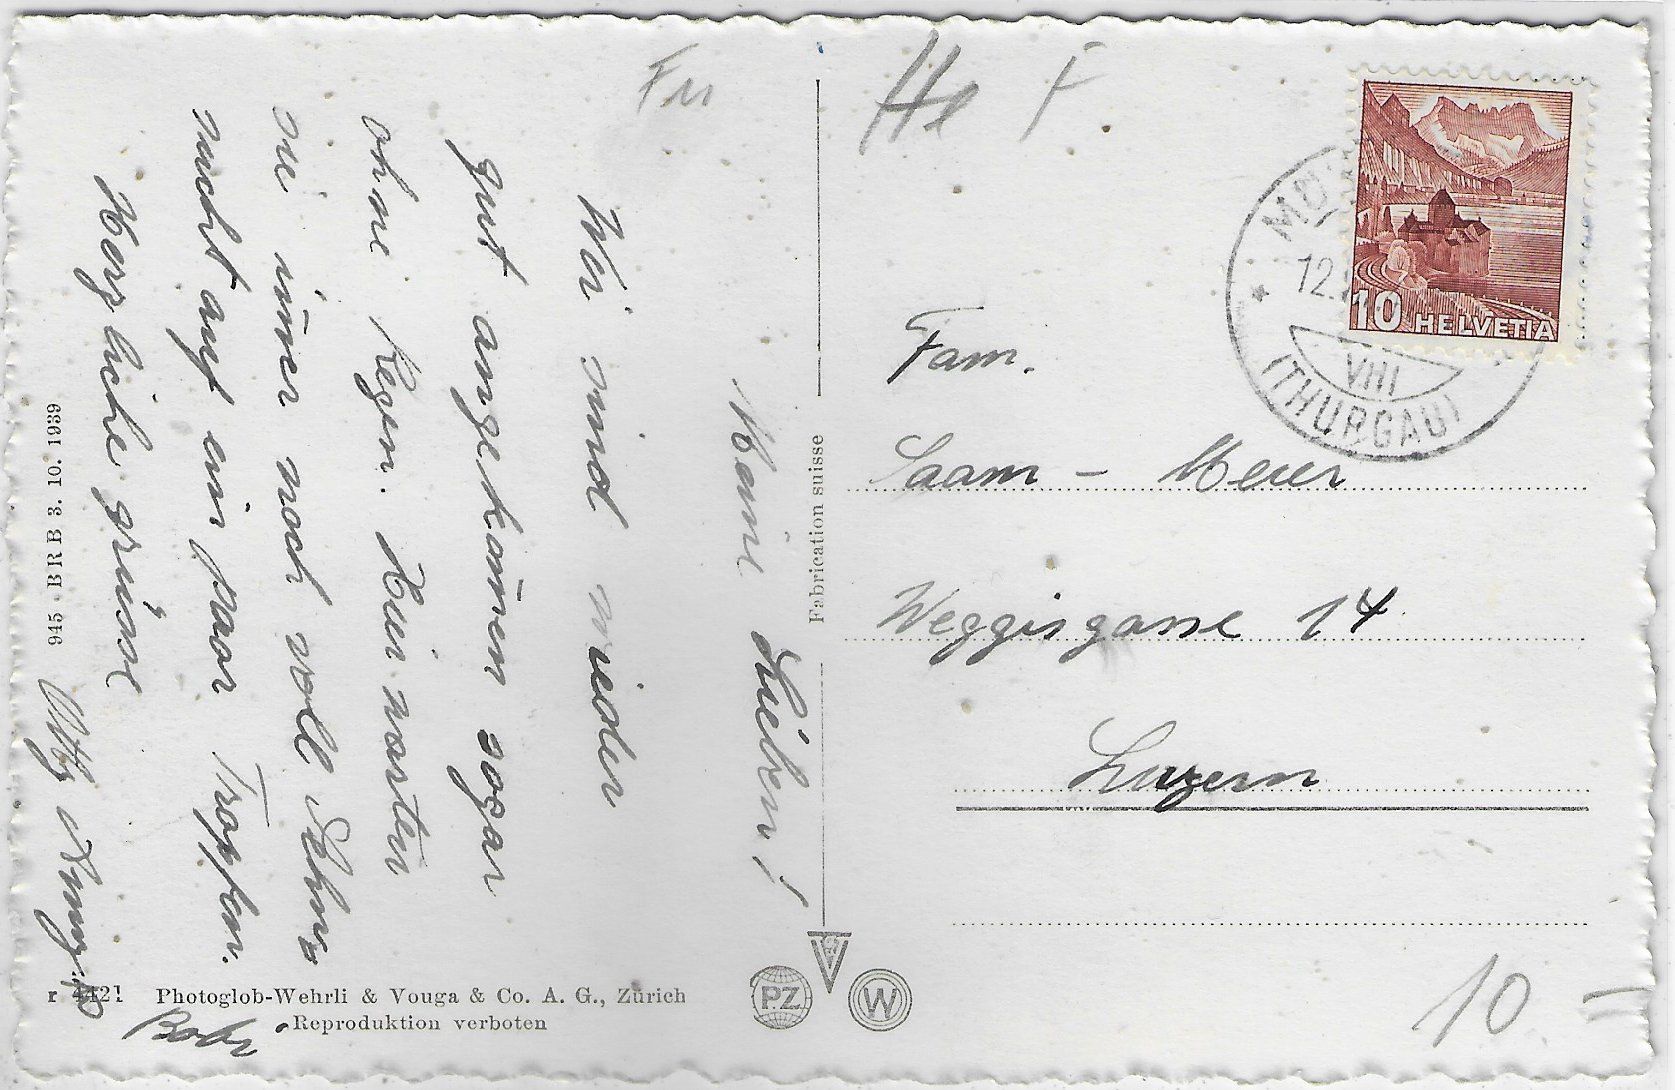 Meine Lieben!
Wir sind wieder
gut angekom̄en sogar
ohne Regen. Hier warten
sie im̄er noch voll Sehns
sucht auf ein paar Tropfen.
Herzliche grüsse
Bobi
945 · BRB 3. 10. 1939
r 4421 Photoglob-Wehrli & Vouga & Co. A. G., Zürich
Reproduktion verboten
Fabrication suisse
PZ
W
Fm
He F
10 HELVETIA
MO
12.
VIII
(THURGAU)
Fam.
Saam - Meier
Weggisgasse 14
Luzern
10 =